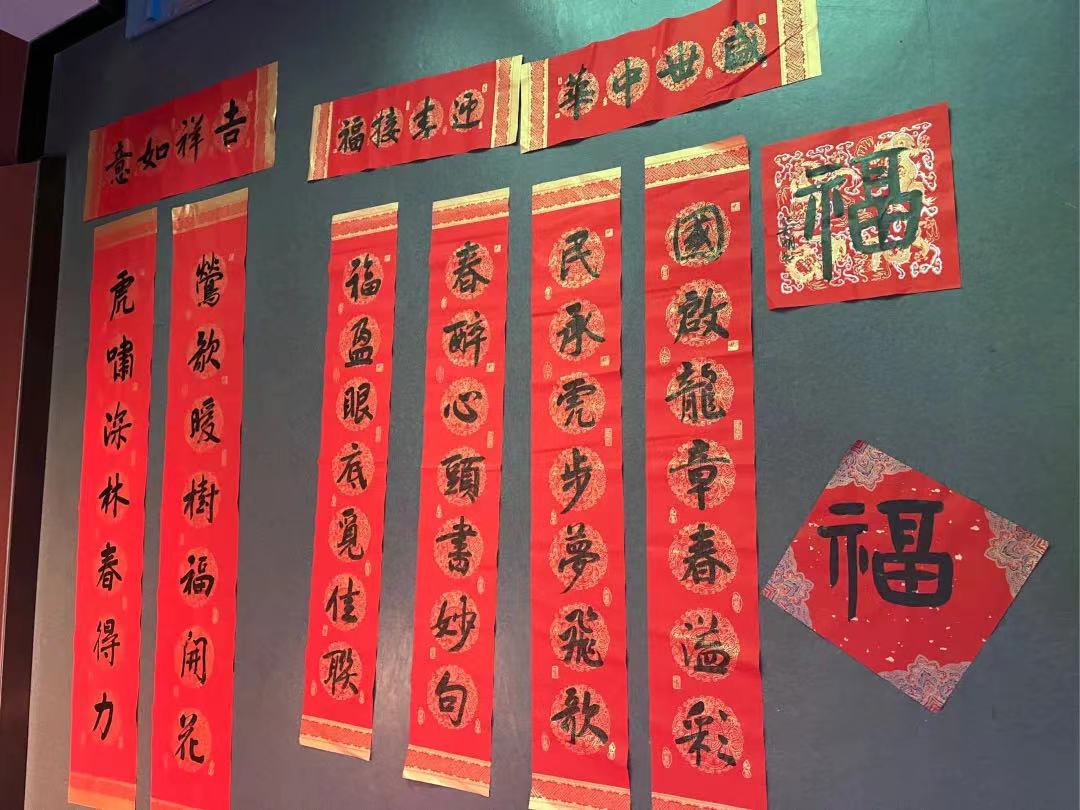 福
福
盛世中華
國啟龍章春溢彩
民承虎步夢飛歌
迎春接福
春醉心頭書妙句
福盈眼底覓佳聯
吉祥如意
鶯歌暖樹福開花
虎嘯深林春得力